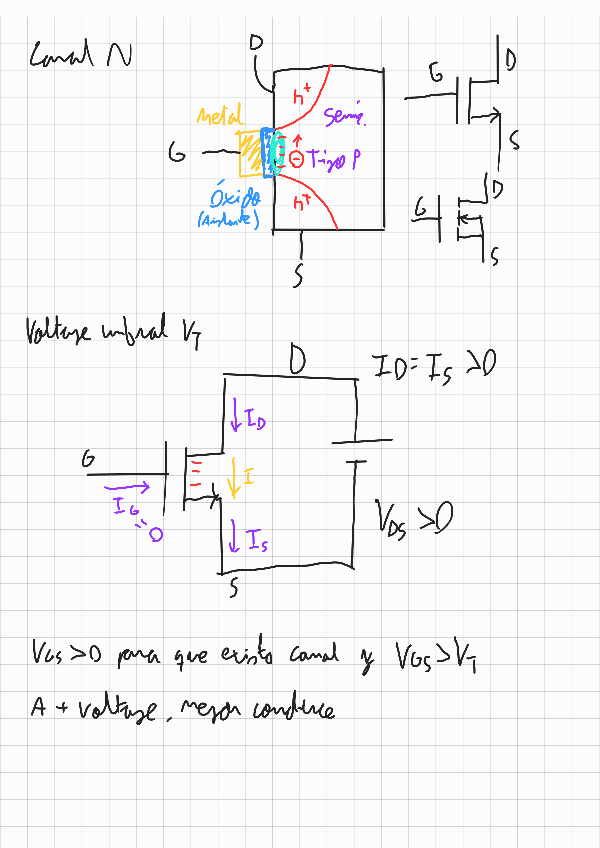 Canal N
D
G
D
S
h+
Metal
Semi.
G
Tipo P
Óxido
(Aislante)
h+
S
G
D
S
Voltaje umbral VT
D
ID = IS > 0
ID
G
I
IG
≈0
IS
VDS > 0
S
VGS > 0 para que exista canal y VGS > VT
A + voltaje, mejor conduce